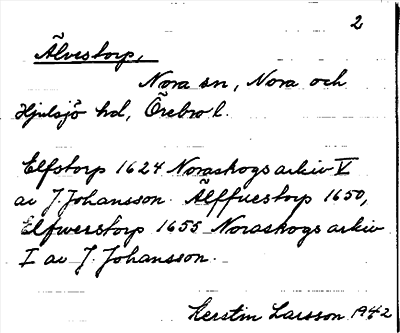 2
Älvestorp,
Nora sn, Nora och
Hjulsjö hd, Örebro l.
Elfstorp 1624 Noraskogs arkiv V
av J. Johansson. Älffuestorp 1650,
Elfwerstorp 1655 Noraskogs arkiv
I av J. Johansson.
Kerstin Larsson 1942